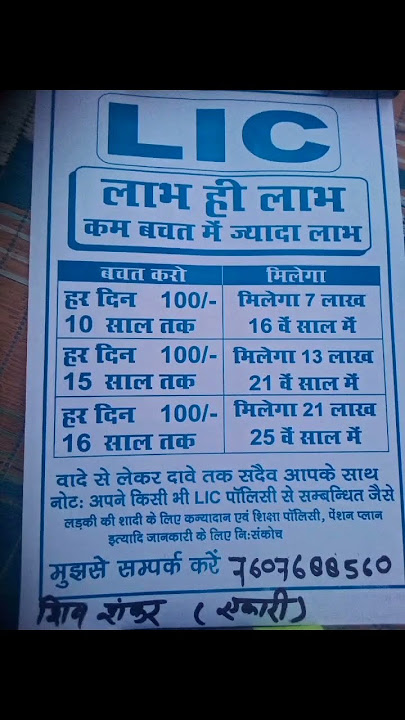 LIC
लाभ ही लाभ
कम बचत में ज्यादा लाभ
बचत करो मिलेगा
हर दिन 100/- मिलेगा 7 लाख
10 साल तक 16 वें साल में
हर दिन 100/- मिलेगा 13 लाख
15 साल तक 21 वें साल में
हर दिन 100/- मिलेगा 21 लाख
16 साल तक 25 वें साल में
वादे से लेकर दावे तक सदैव आपके साथ
नोट: अपने किसी भी LIC पॉलिसी से सम्बन्धित जैसे
लड़की की शादी के लिए कन्यादान एवं शिक्षा पॉलिसी, पेंशन प्लान
इत्यादि जानकारी के लिए नि:संकोच
मुझसे सम्पर्क करें 7607688560
शिव शंकर (एकारी)